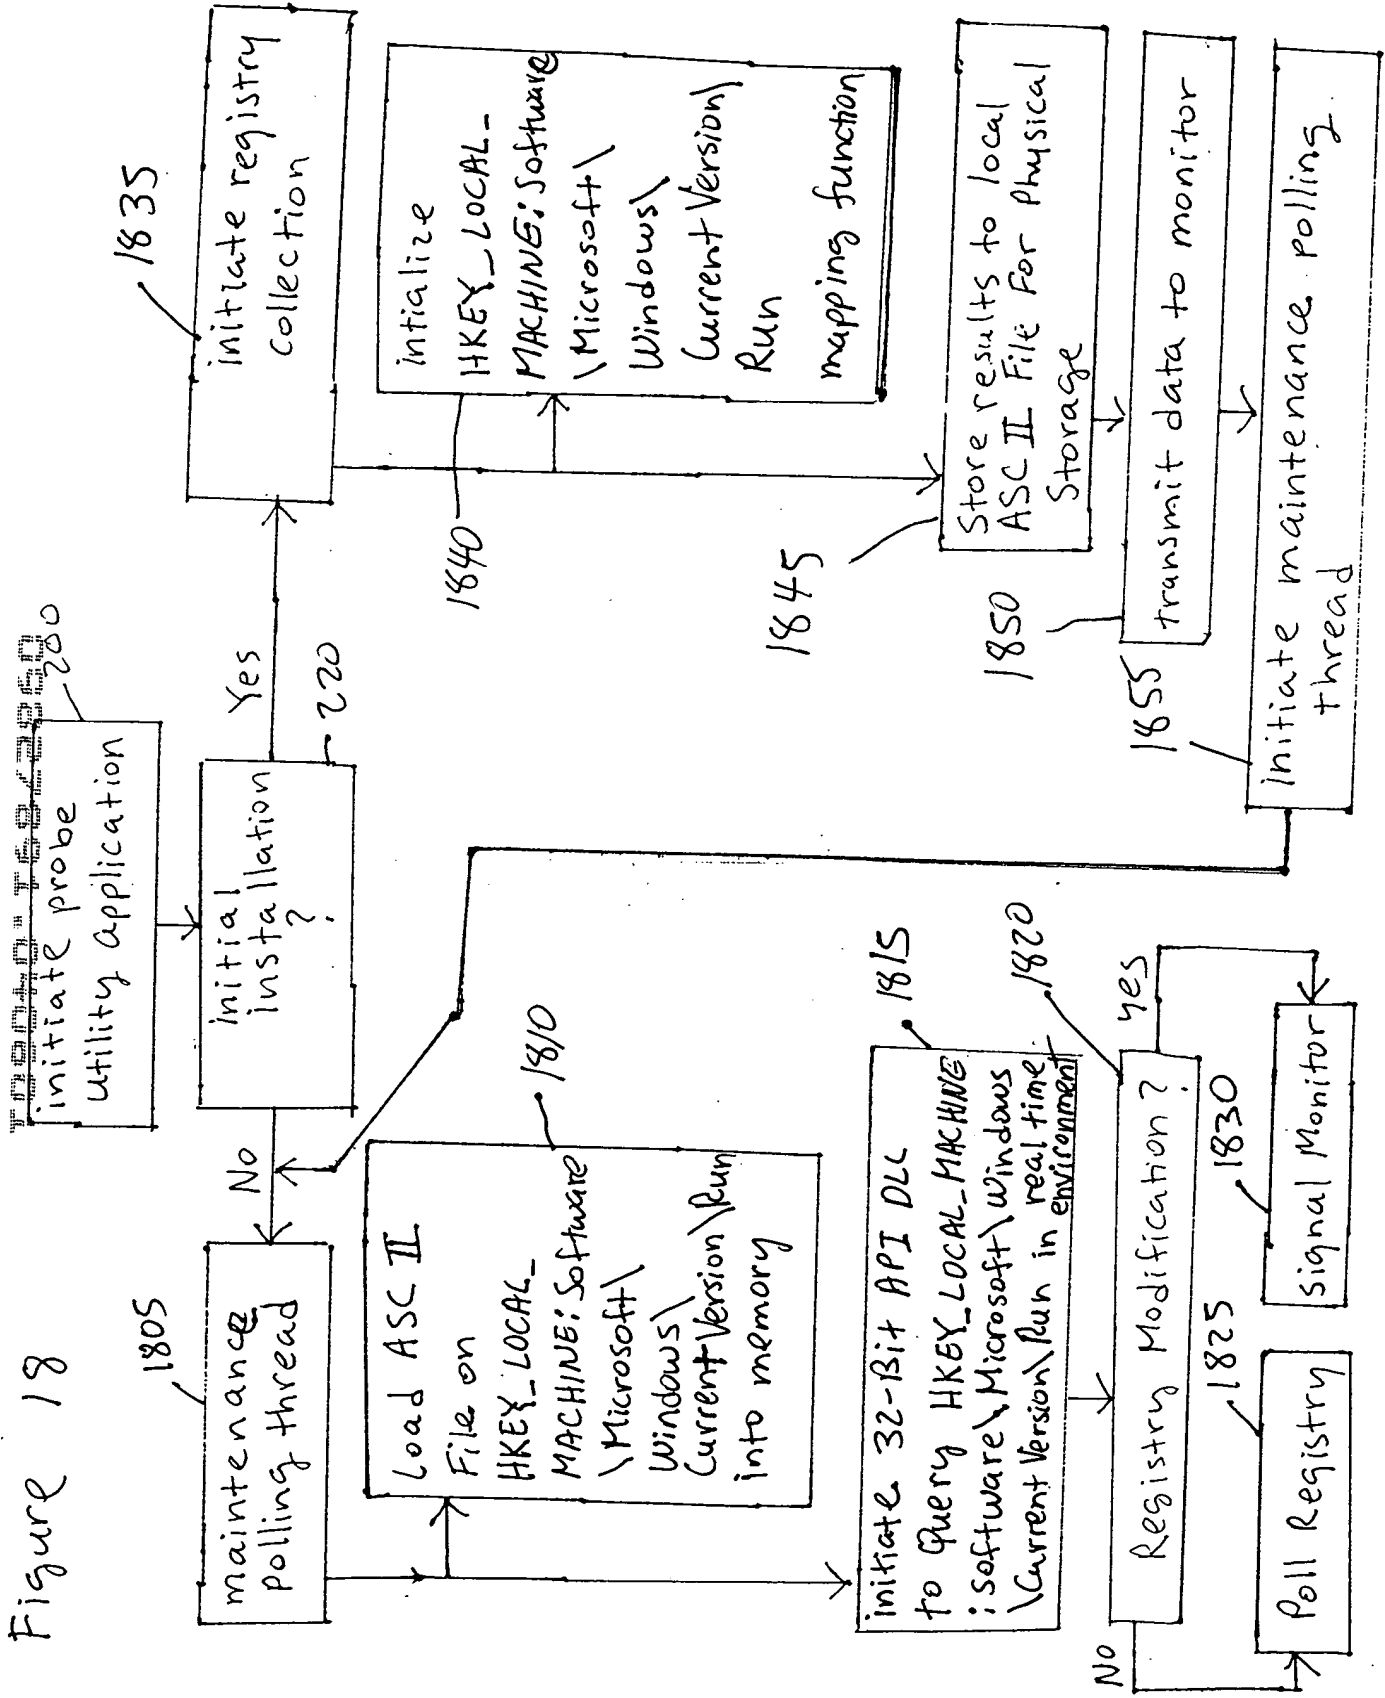 Figure 18
initiate probe
utility application
200
initial
installation
?
220
Yes
No
1805
maintenance
polling thread
Load ASC II
File on
HKEY_LOCAL_
MACHINE:Software
\Microsoft\
Windows\
CurrentVersion\Run
into memory
1810
initiate 32-Bit API DLL
to Query HKEY_LOCAL_MACHINE
:software\Microsoft\Windows
\CurrentVersion\Run in real time
environment
1815
Registry Modification?
1820
No
yes
Poll Registry
1825
Signal Monitor
1830
initiate registry
collection
1835
intialize
HKEY_LOCAL_
MACHINE:Software
\Microsoft\
Windows\
CurrentVersion\
Run
mapping function
1840
Store results to local
ASC II File For Physical
Storage
1845
transmit data to monitor
1850
initiate maintenance polling
thread
1855